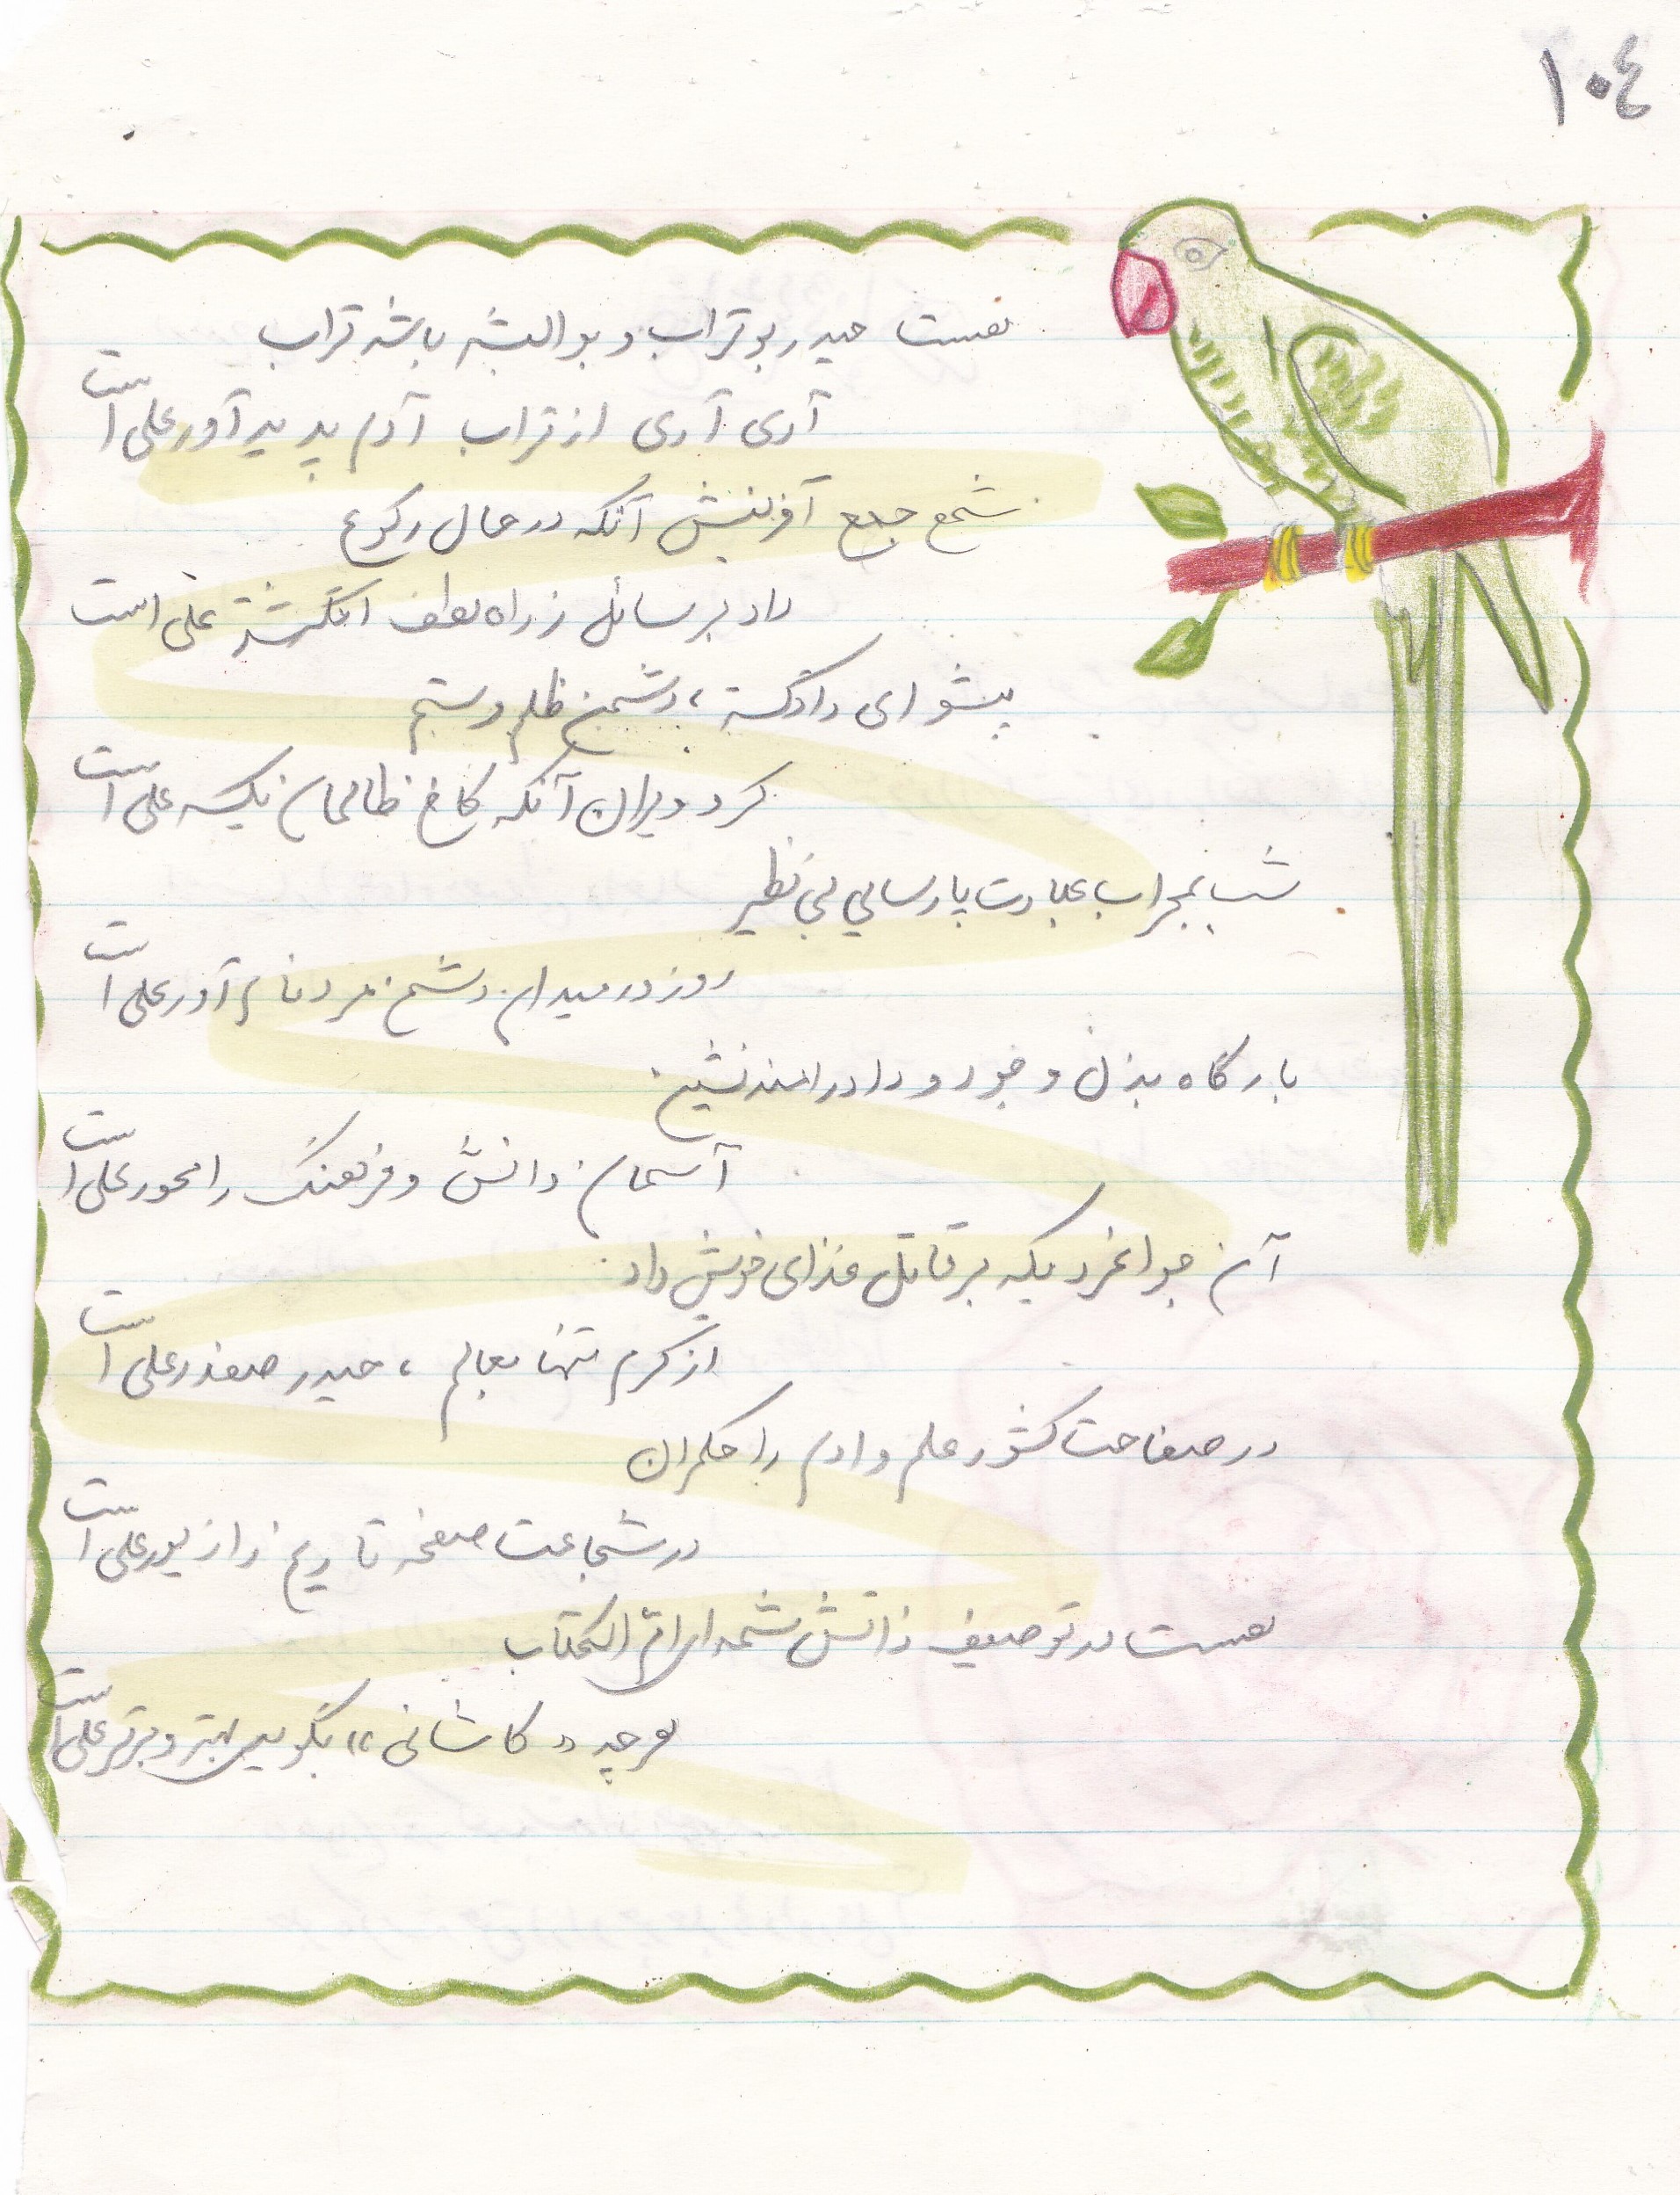 ۱۰٤
هست حیدر بوتراب و بوالبشر باشد تراب
آری آری از تراب آدم پدید آور علی است
شمع جمع آفرینش آنکه در حال رکوع
داد بر سائل ز راه لطف انگشتر علی است
پیشوای دادگستر، دشمن ظلم و ستم
کرد ویران آنکه کاخ ظالمان یکسر علی است
شب بمحراب عبادت پارسایی بی نظیر
روز در میدان دشمن مرد نام آور علی است
بارگاه بذل و جود و داد را مسند نشین
آسمان دانش و فرهنگ را محور علی است
آن جوانمردیکه بر قاتل غذای خویش داد
از کرم تنها بعالم ، حیدر صفدر علی است
در صفاحت کشور علم و ادب را حکمران
در شجاعت صفحه تاریخ را زیور علی است
هست در توصیف ذاتش شمه ای ام الکتاب
هر چه «کاشانی» بگویی بهتر و برتر علی است